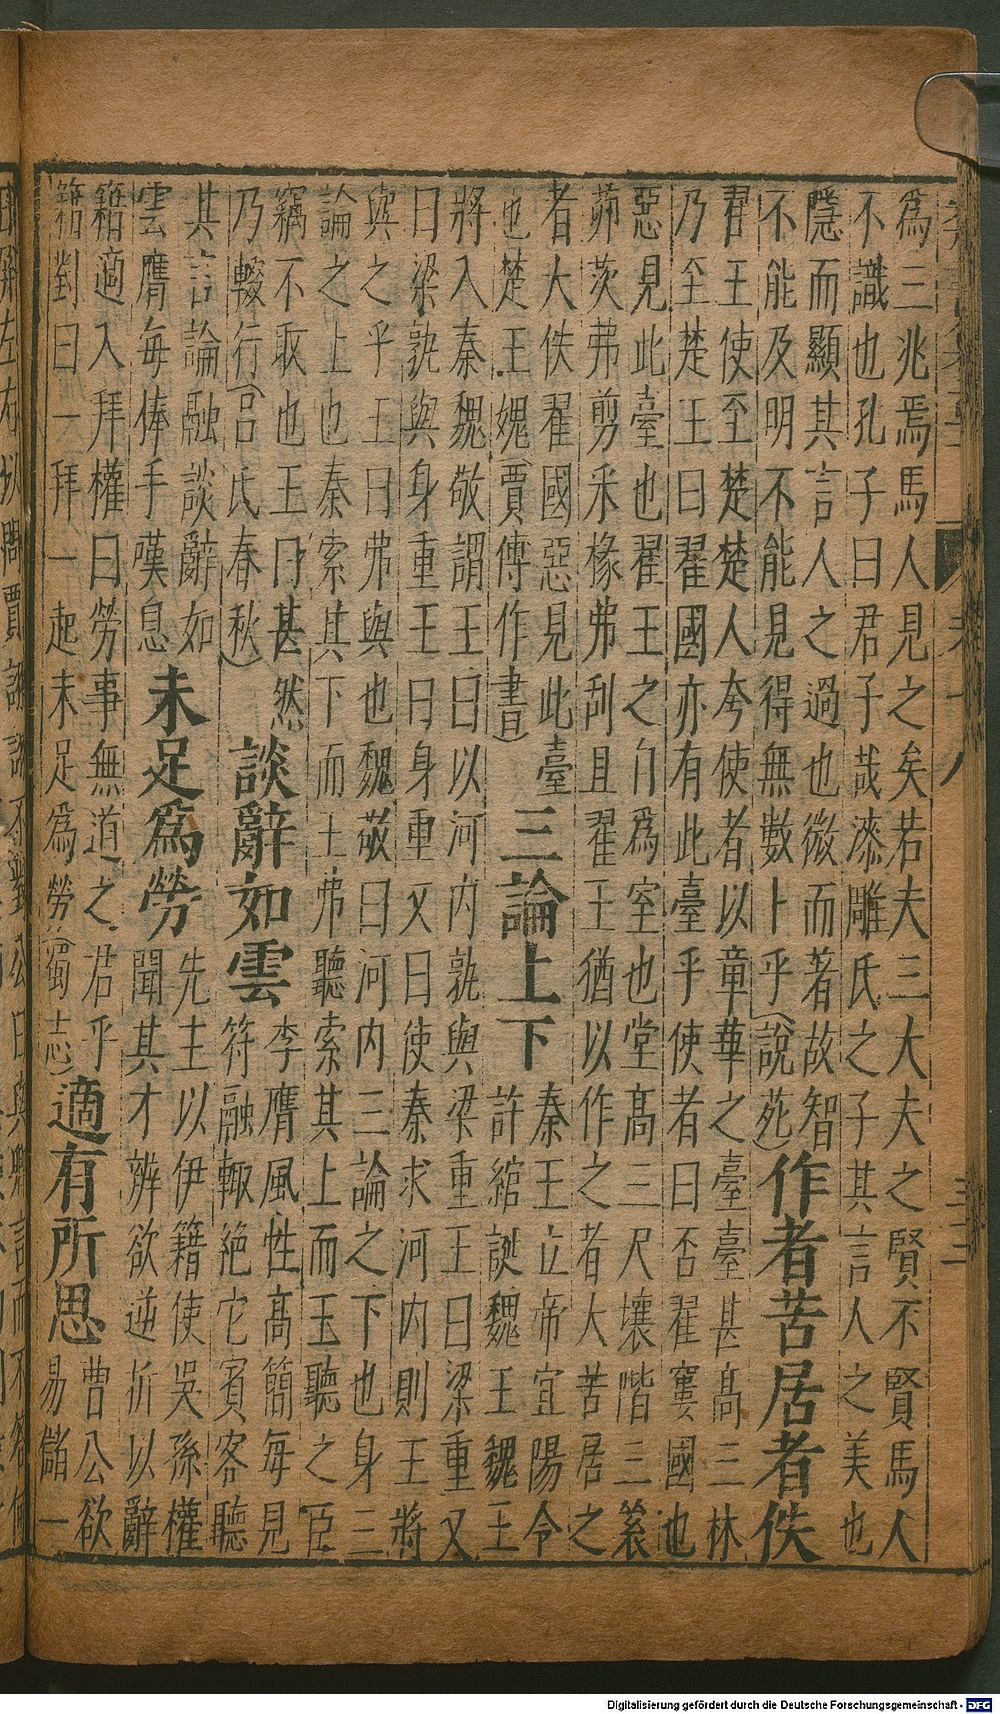 為三兆焉馬人見之矣若夫三大夫之賢不賢馬人
不識也孔子曰君子哉漆雕氏之子其言人之美也
隱而顯其言人之過也微而著故智
不能及明不能見得無數卜乎(說苑)
作者苦居者佚
君王使至楚楚人夸使者以章華之臺臺甚高三林
乃至楚王曰翟國亦有此臺乎使者曰否翟窶國也
惡見此臺也翟王之自為室也堂高三尺壤階三纍
茆茨弗剪采椽弗刮且翟王猶以作之者大苦居之
者大佚翟國惡見此臺
也楚王媿(賈傳作書)
三論上下
秦王立帝宜陽令
許綰誕魏王魏王
將入秦魏敬謂王曰以河內孰與梁重王曰梁重又
曰梁孰與身重王曰身重又曰使秦求河內則王將
與之乎王曰弗與也魏敬曰河內三論之下也身三
論之上也秦索其下而王弗聽索其上而王聽之臣
竊不敢也王曰甚然
乃輟行(呂氏春秋)
談辭如雲
李膺風性高簡每見
符融輙絕它賓客聽
其言論融談辭如
雲膺每捧手嘆息
未足為勞
先主以伊籍使吳孫權
聞其才辨欲逆折以辭
籍適入拜權曰勞事無道之君乎
籍對曰一拜一起未足為勞(蜀志)
適有所思
曹公欲
易儲一
Digitalisierung gefördert durch die Deutsche Forschungsgemeinschaft - DFG